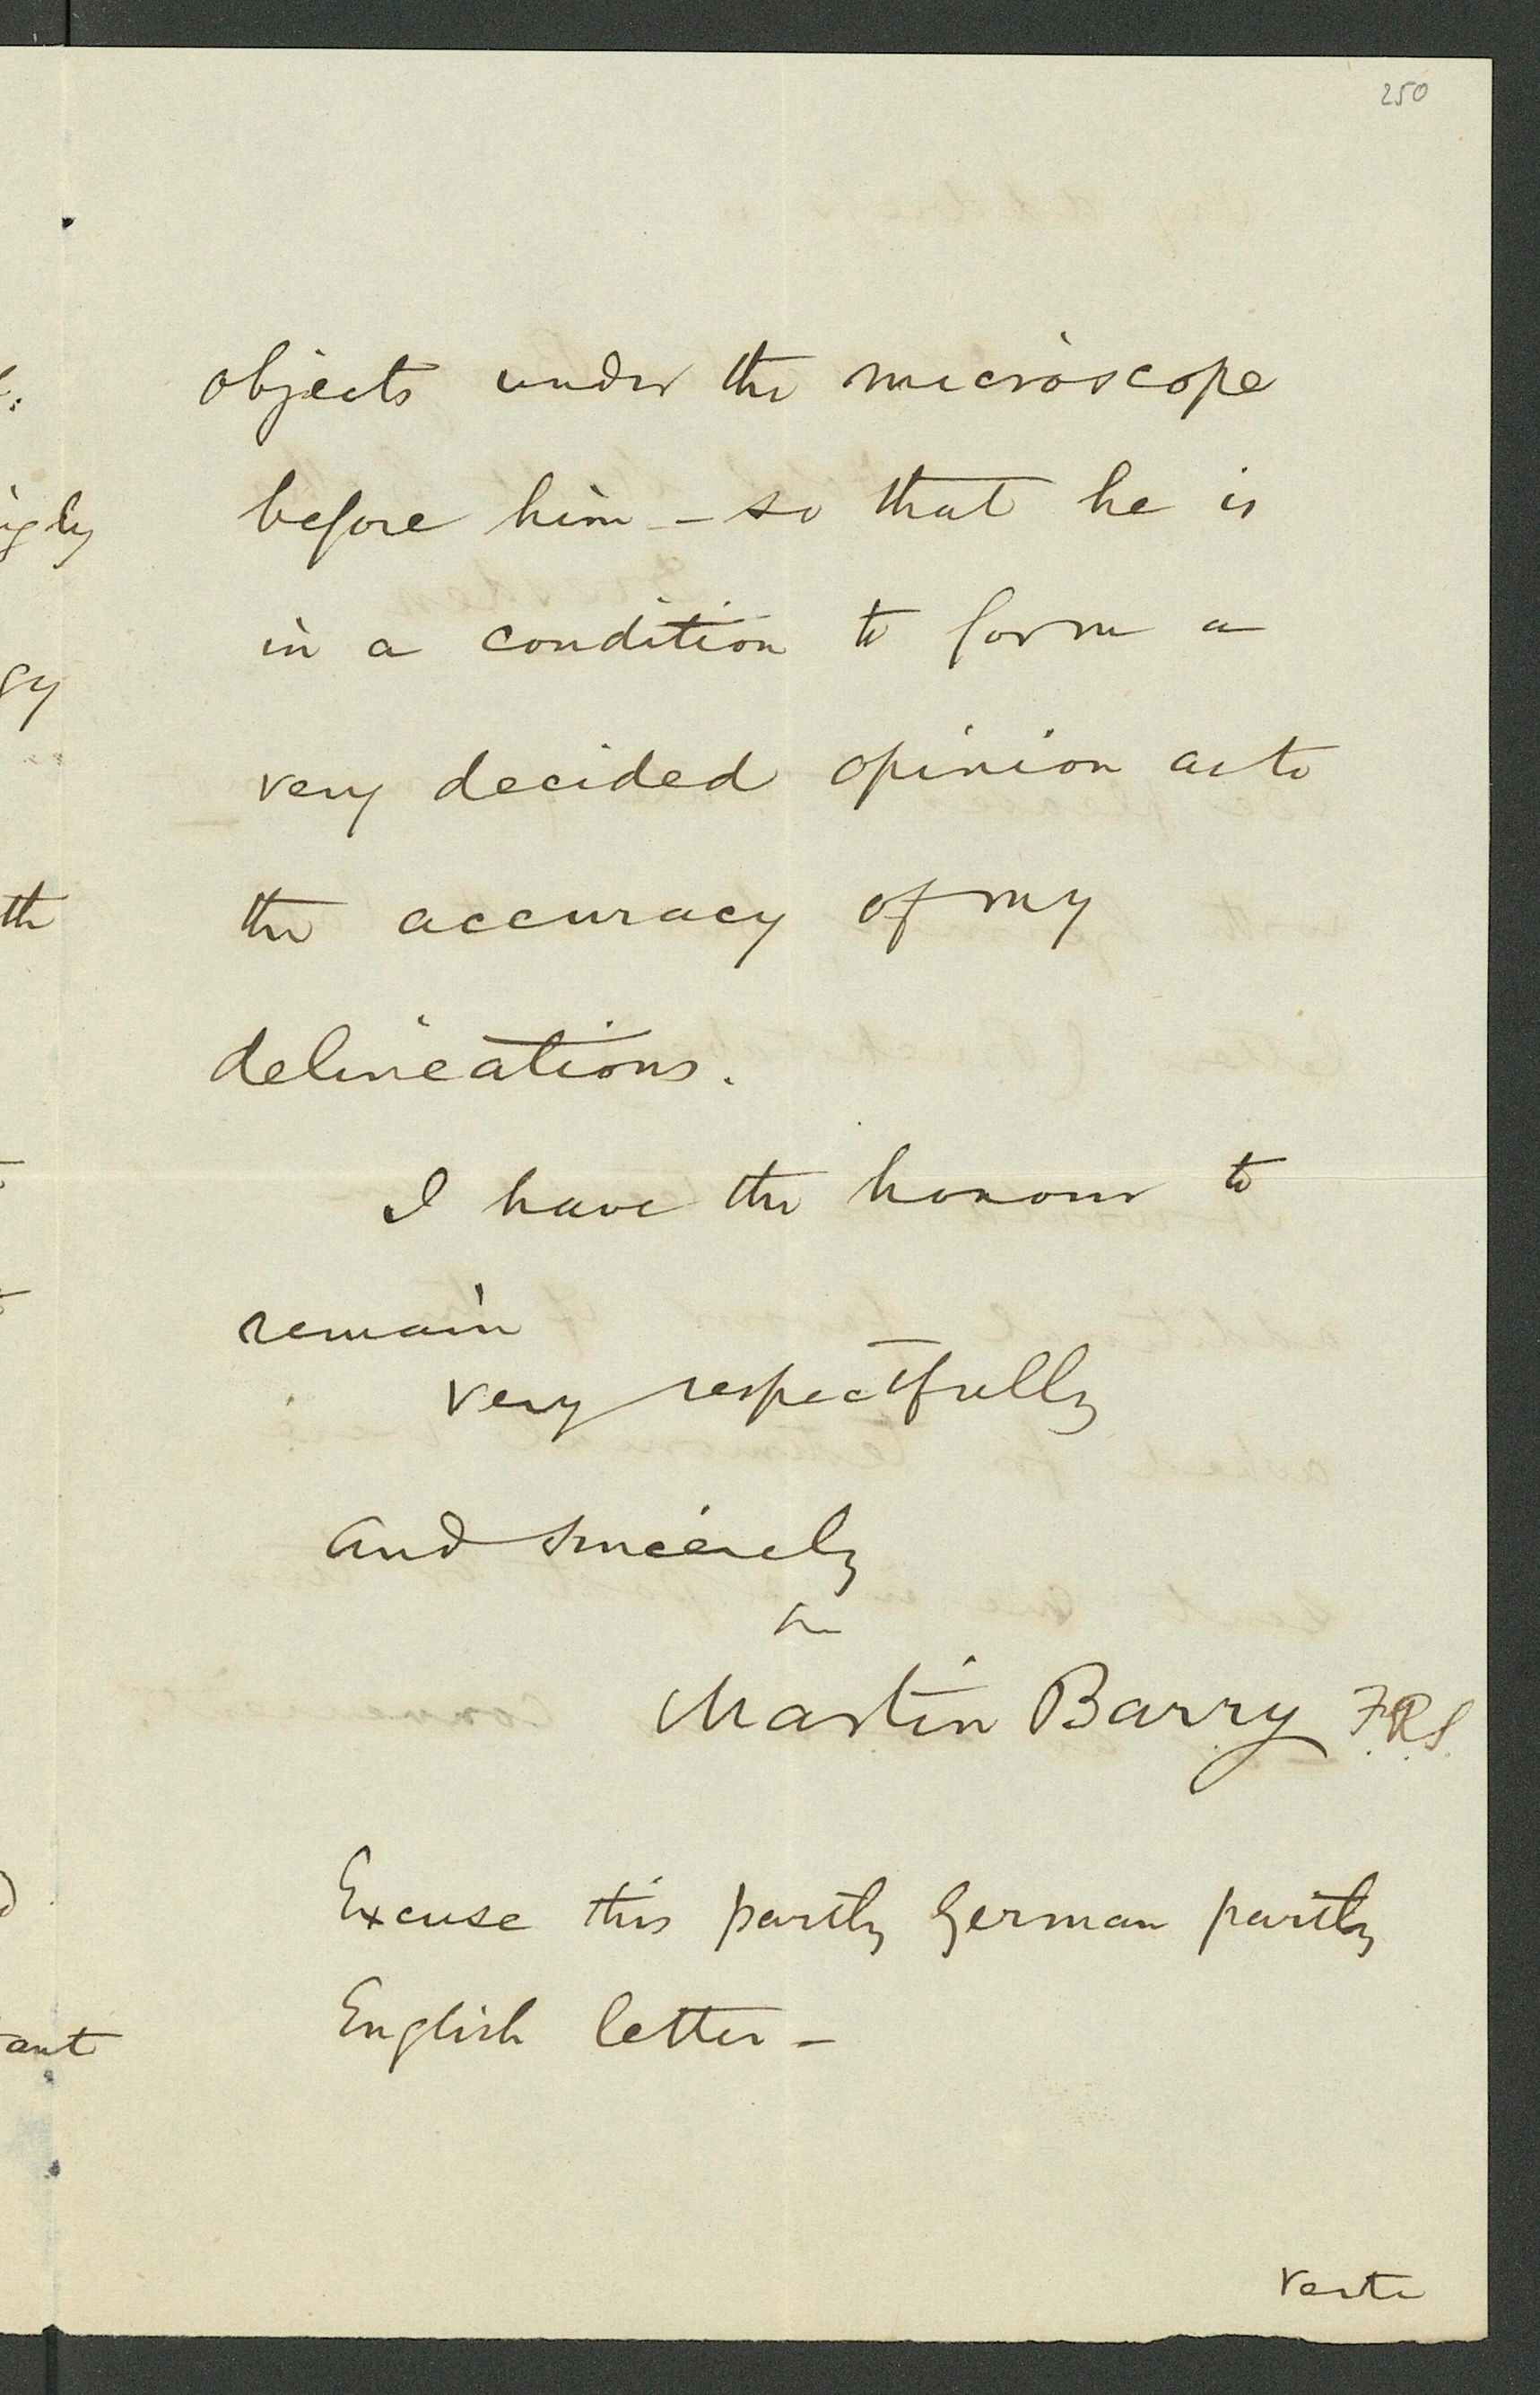 250
objects under the microscope
before him – so that he is
in a condition to form a
very decided opinion as to
the accuracy of my
delineations.
I have the honour to
remain
very respectfully
and sincerely
Martin Barry F.R.S.
Excuse this partly German partly
English letter –
verte